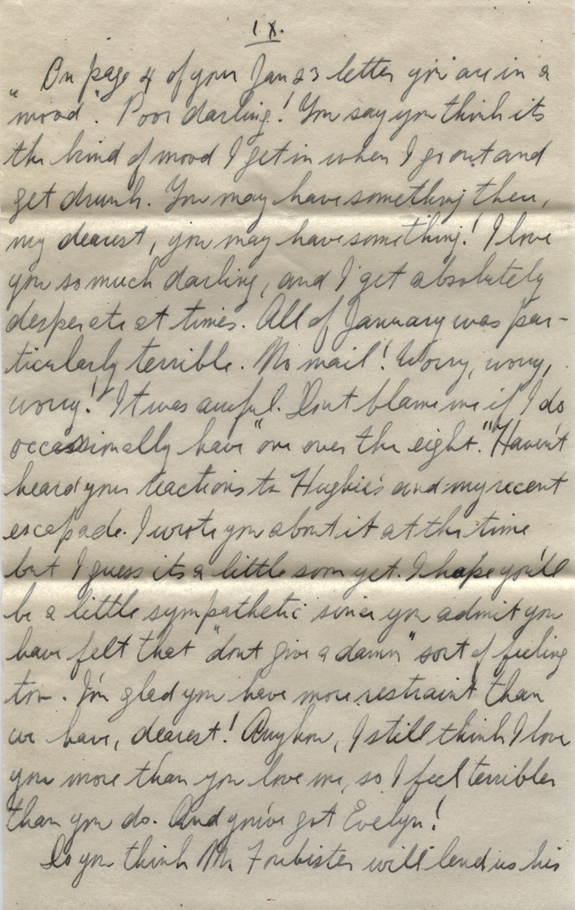 IX.
On page 4 of your Jan 23 letter you are in a
"mood". Poor darling! You say you think its
the kind of mood I get in when I go out and
get drunk. You may have something then,
my dearest, you may have something! I love
you so much darling, and I get absolutely
desperate at times. All of January was par-
ticularly terrible. No mail! Worry, worry,
worry! It was awful. Dont blame me if I do
occasionally have "one over the eight." Haven't
heard your reactions to Hughie's and my recent
escapade. I wrote you about it at the time
but I guess its a little soon yet. I hope you'll
be a little sympathetic since you admit you
have felt that "dont give a damn" sort of feeling
too. I'm glad you have more restraint than
we have, dearest! Anyhow, I still think I love
you more than you love me, so I feel terribler
than you do. And you've got Evelyn!
Do you think Mr Foubister will lend us his